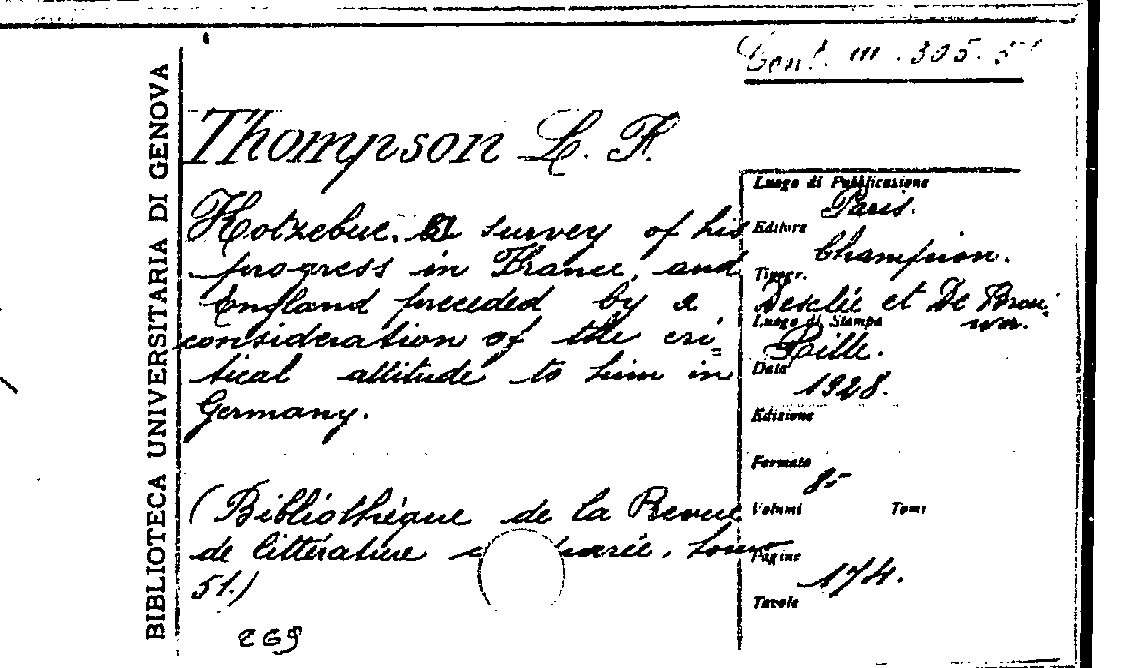 Cont. III. 305. 51
BIBLIOTECA UNIVERSITARIA DI GENOVA
Thompson L. F.
Kotzebue. A survey of his
progress in France, and
England preceded by a
consideration of the cri=
tical attitude to him in
Germany.
(Bibliothèque de la Revue
de littérature tome
51.)
Luogo di Pubblicazione
Paris.
Editore
Champion.
Tipogr.
Desclée et De Brou-
wer.
Luogo di Stampa
Lille.
Data
1928.
Edizione
Formato
8°
Volumi Tomi
Pagine
174.
Tavole